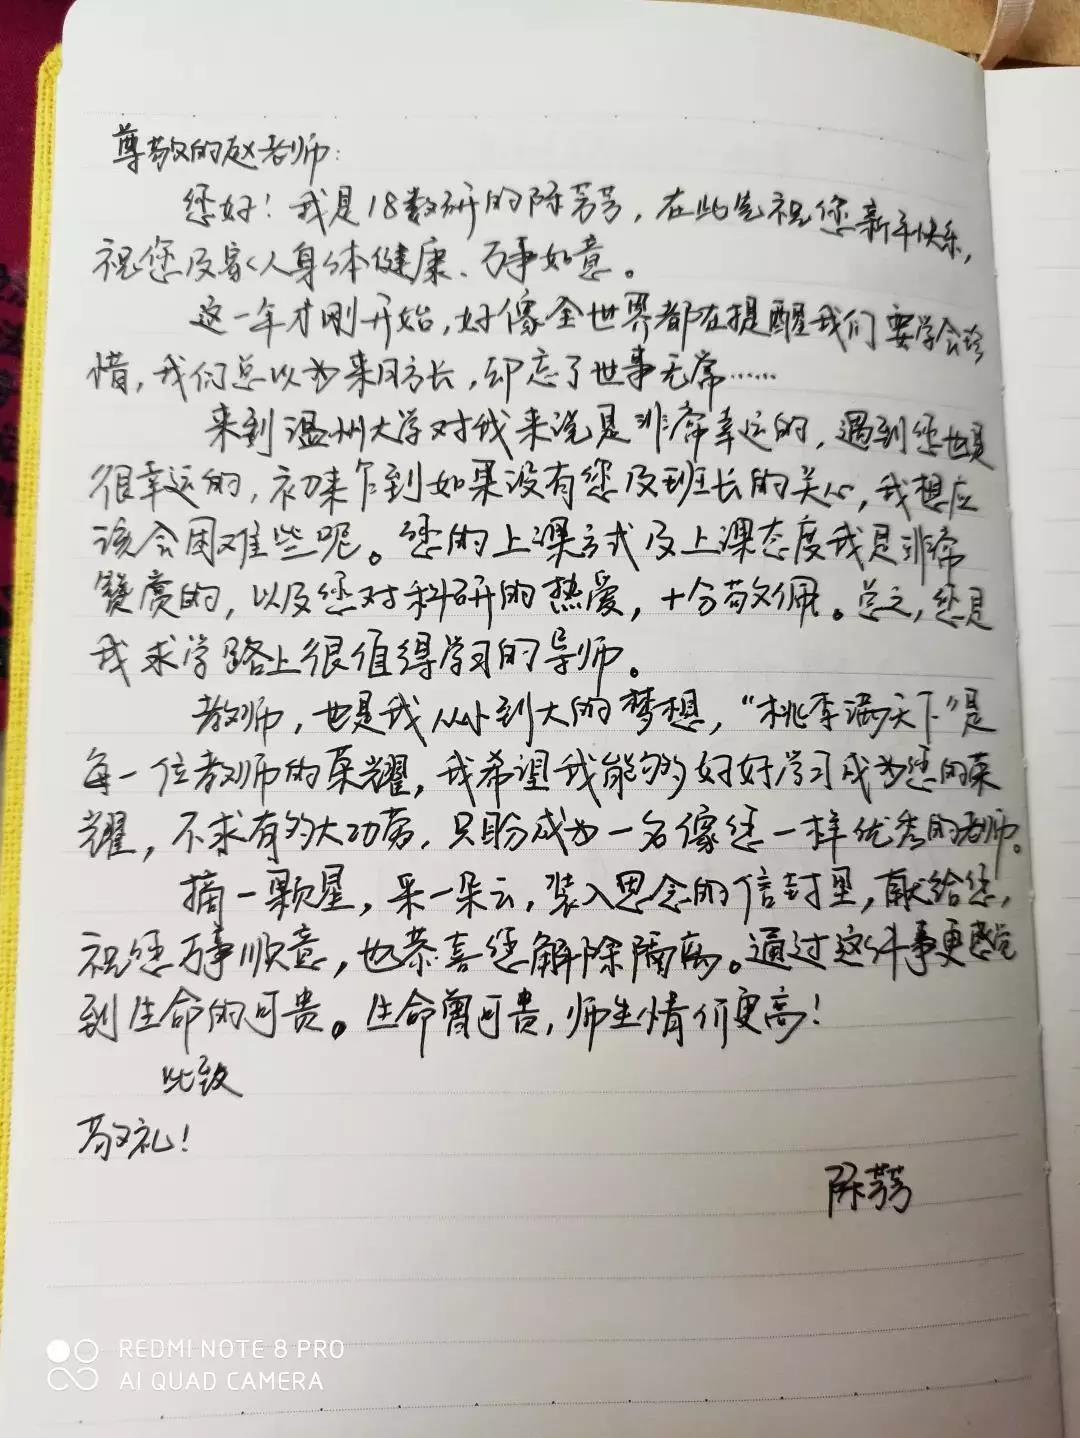 尊敬的赵老师:
您好!我是18数研的陈芳芳,在此先祝您新年快乐,
祝您及家人身体健康、万事如意。
这一年才刚开始,好像全世界都在提醒我们要学会珍
惜,我们总以为来日方长,却忘了世事无常……
来到温州大学对我来说是非常幸运的,遇到您也是
很幸运的,初来乍到如果没有您及班长的关心,我想应
该会困难些呢。您的上课方式及上课态度我是非常
赞赏的,以及您对科研的热爱,十分敬佩。总之,您是
我求学路上很值得学习的导师。
教师,也是我从小到大的梦想,“桃李满天下”是
每一位教师的荣耀,我希望我能够好好学习成为您的荣
耀,不求有多大功劳,只盼成为一名像您一样优秀的老师。
摘一颗星,采一朵云,装入思念的信封里,献给您,
祝您万事顺意,也恭喜您解除隔离。通过这件事更感觉
到生命的可贵。生命曾可贵,师生情价更高!
此致
敬礼!
陈芳芳
REDMI NOTE 8 PRO
AI QUAD CAMERA